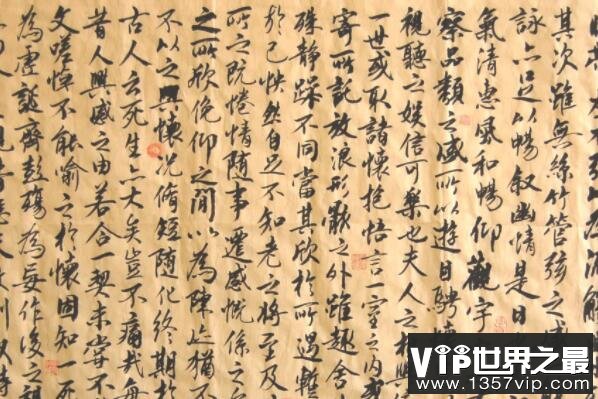 其次雖無絲竹管弦之
詠亦足以暢叙幽情是日
氣清惠風和暢仰觀宇
察品類之盛所以遊目騁懷
視聽之娛信可樂也夫人之相
一世或取諸懷抱悟言一室之內
寄所託放浪形骸之外雖趣舍
殊静躁不同當其欣於所遇暫
於己怏然自足不知老之將至及
所之既惓情随事遷感慨係之
之所欣俛仰之間以為陳迹猶不
不以之興懷況脩短随化終期於
古人云死生亦大矣豈不痛哉每
昔人興感之由若合一契未嘗不
文嗟悼不能喻之於懷固知一死
為虛誕齊彭殤為妄作後之視
VIP世界之最
www.1357vip.com